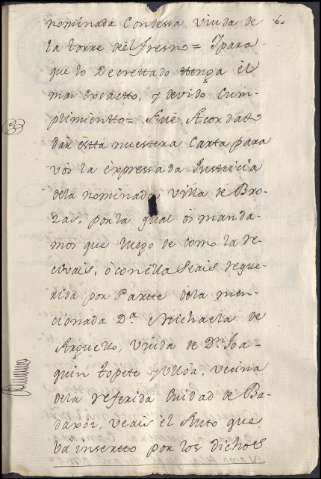 nominada Condesa viuda de
la torre del fresno = Y para
que lo Decrettado ttenga el
mas exactto, y devido Cum-
plimientto = fue Acordado
dar estta nuesttra Cartta para
vós la expresada Justticia
dela nominada villa de Bro-
zas, por la qual os manda-
mos que luego de como la re-
civais, ó con ella seais reque-
rida por Partte dela men-
cionada D.ª Michaela de
Arguello, viuda de Dn. Joa-
quin topete y Ulloa, vecina
dela referida Ciudad de Ba-
dajóz, veais el Auto que
va insertto por los dichos